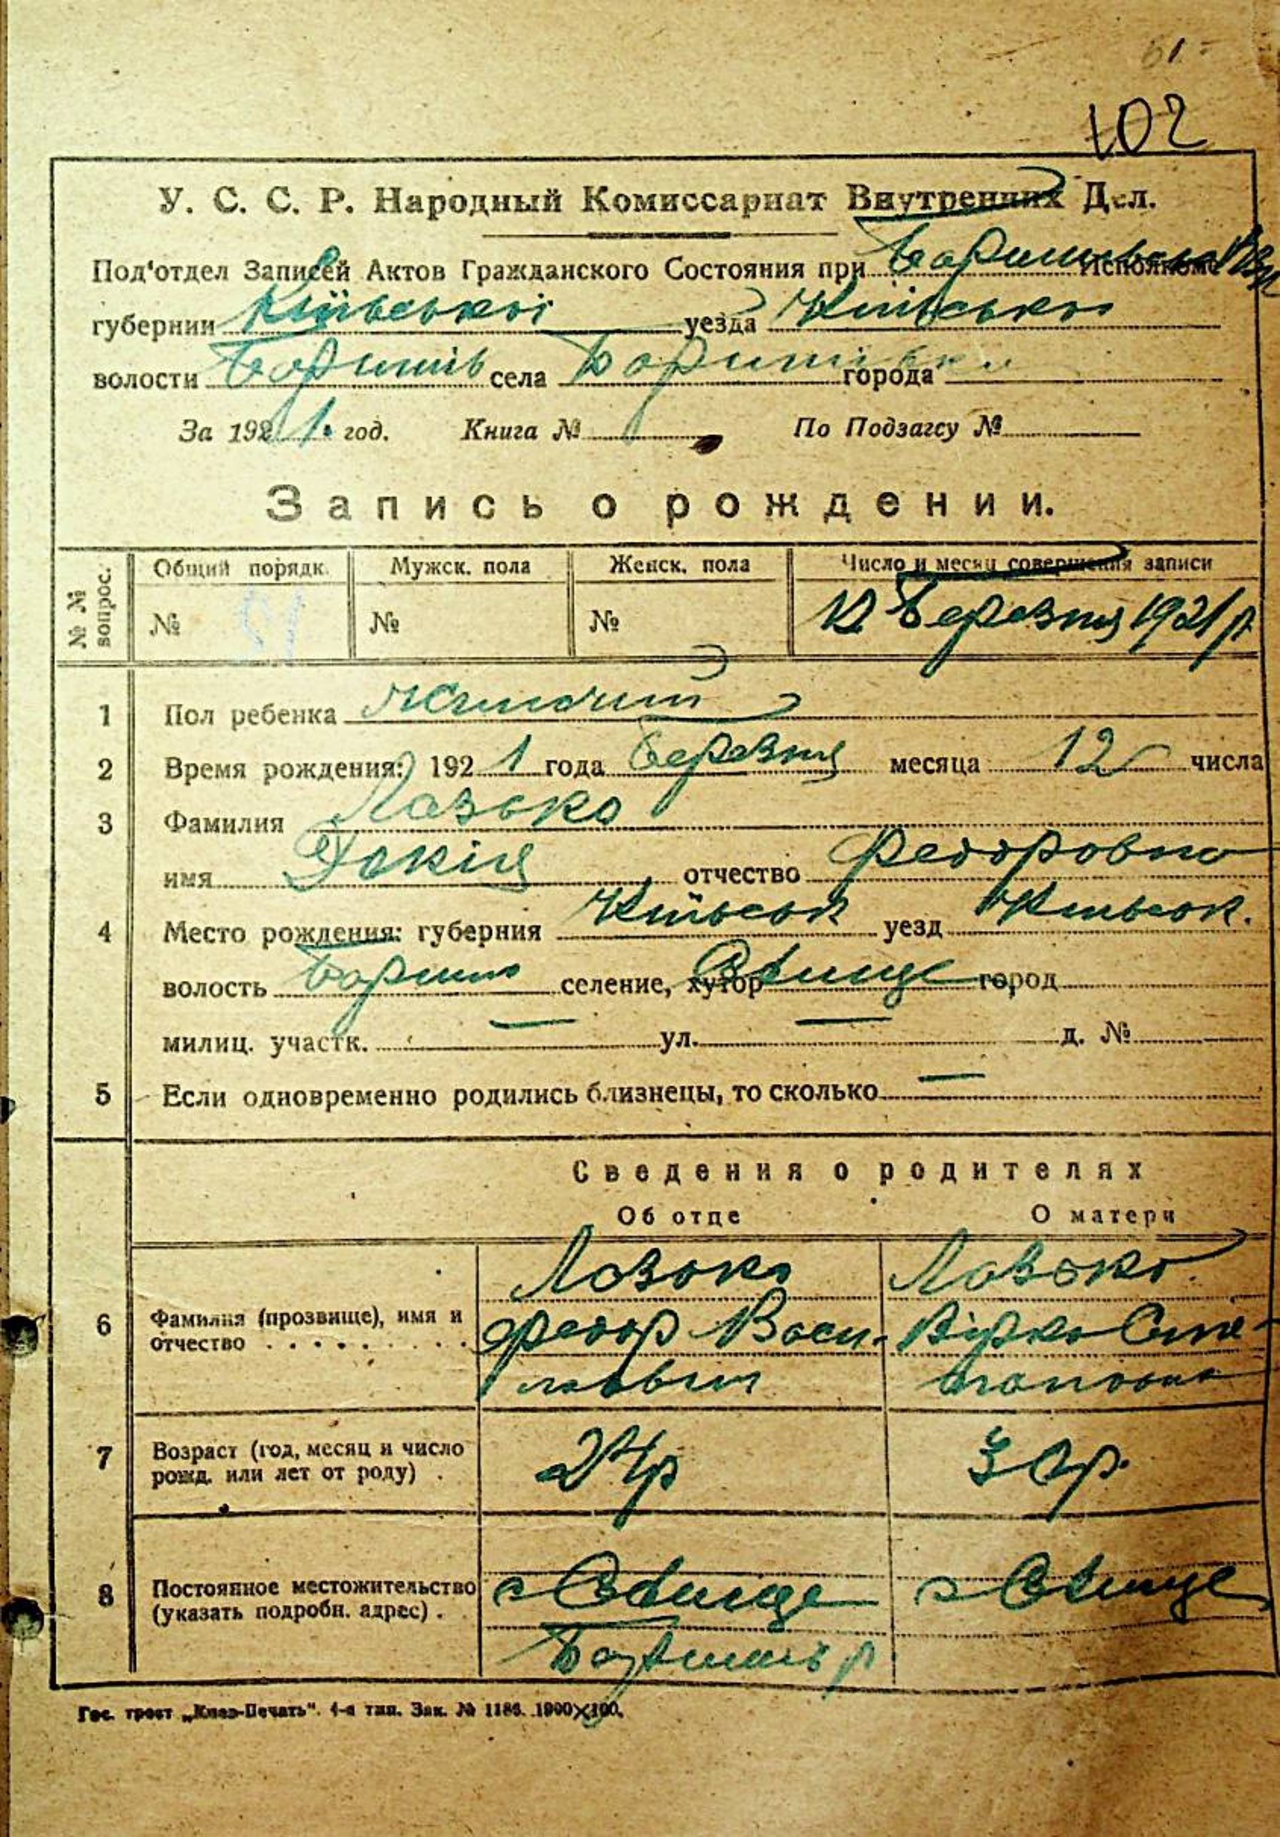 102
У. С. С. Р. Народный Комиссариат Внутренних Дел.
Под'отдел Записей Актов Гражданского Состояния при Исполкоме
губернии Київської уезда Київсько
волости Баришів села города
За 1921. год. Книга № По Подзагсу №
Запись о рождении.
№ № вопрос. Общий порядк. Мужск. пола Женск. пола Число и месяц совершения записи
№ № № 12 Березня 1921 р
1 Пол ребенка жіночий
2 Время рождения: 1921 года Березня месяца 12 числа
3 Фамилия Лазько
имя отчество Федоровна
4 Место рождения: губерния Київськ уезд Київськ.
волость Бариш селение, хутор город
милиц. участк. — ул. — д. №
5 Если одновременно родились близнецы, то сколько —
Сведения о родителях
Об отце О матери
6 Фамилия (прозвище), имя и отчество Лазько Лазько
Федор Васи-
7 Возраст (год, месяц и число рожд. или лет от роду) 24р 30р.
8 Постоянное местожительство (указать подробн. адрес)
Гос. трест „Киев-Печать“. 4-я тип. Зак. № 1186. 1900×100.